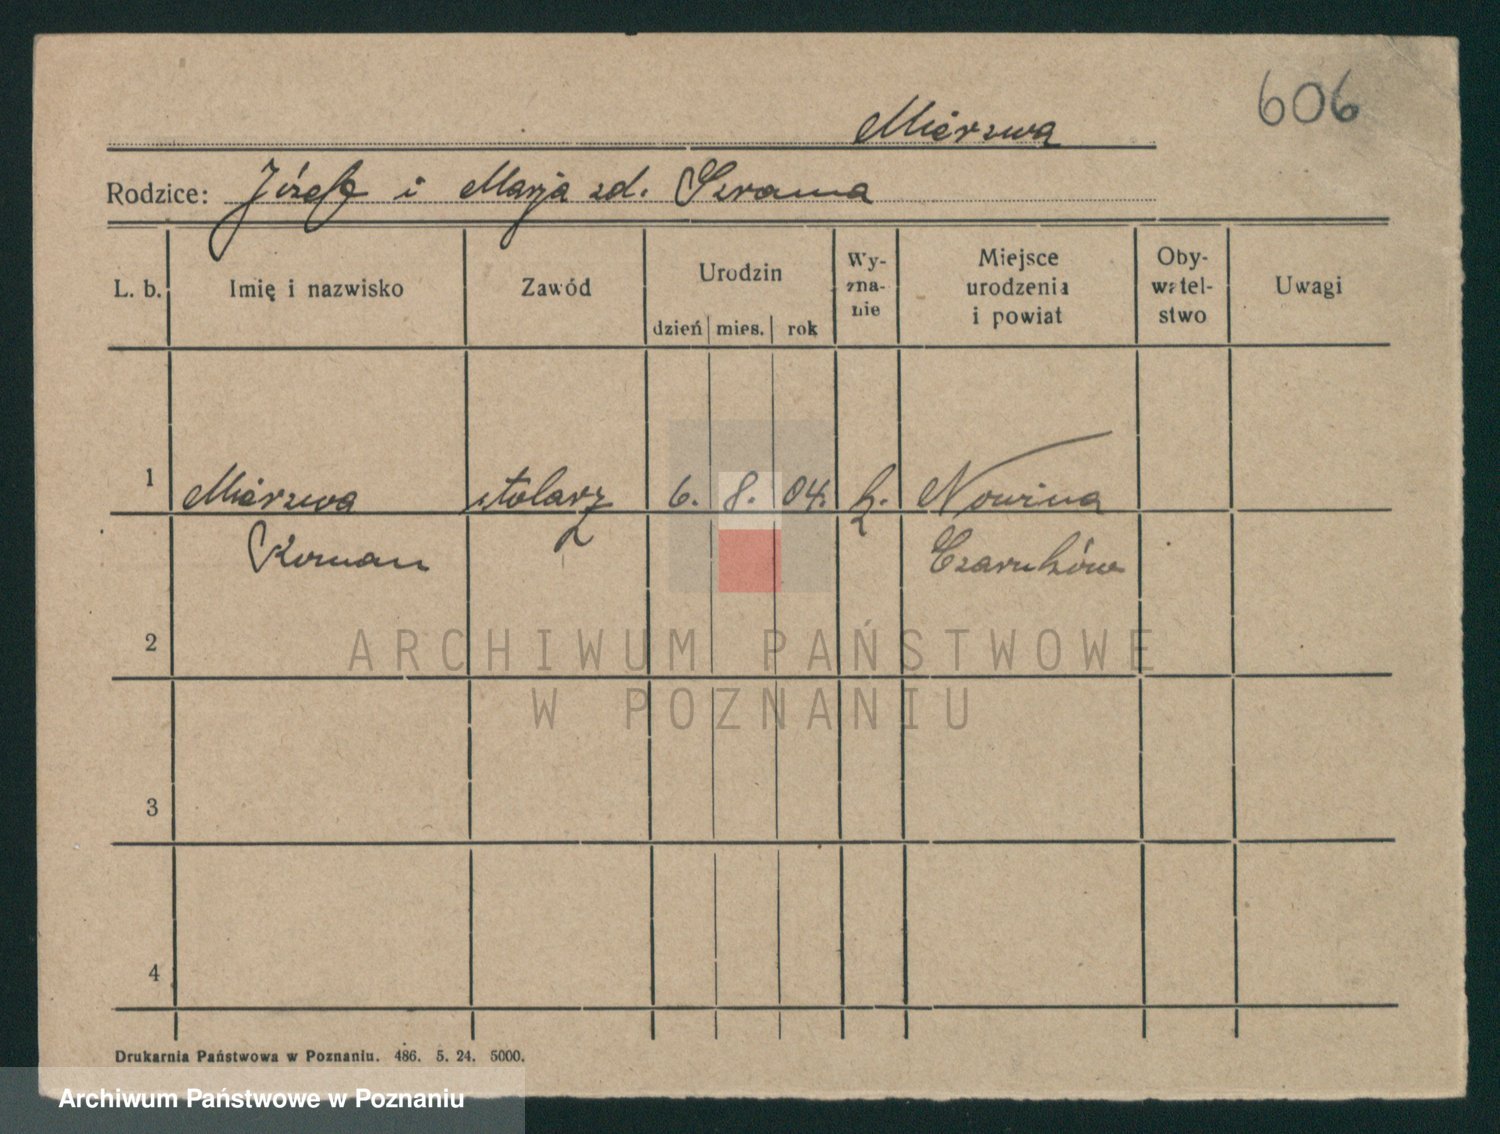 606
Mierzwa
Rodzice: Józef i Marja zd. Szrama
L. b.
Imię i nazwisko
Zawód
Urodzin
dzień mies. rok
Wy-
zna-
nie
Miejsce
urodzenia
i powiat
Oby-
watel-
stwo
Uwagi
1 Mierzwa stolarz 6. 8. 04. k. Nowina
Roman Czarnków
2
ARCHIWUM PAŃSTWOWE
W POZNANIU
3
4
Drukarnia Państwowa w Poznaniu. 486. 5. 24. 5000.
Archiwum Państwowe w Poznaniu